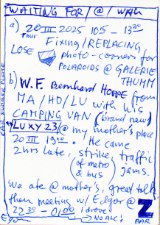 WAITING FOR / @ / WALK
a) 20 III 2025 105 - 1335
THUR
Fixing/REPLACING
LOSE photo-corners for
POLAROIDS @ GALERIE
THUMM
b) W.F. Bernhard HOPPE from
MA/HD/LU with LUXY
CAMPING VAN (brand new)
LUXY 23/@ my mother's place
20 III 19 . He came
2 hrs late, strike, traffic
of metro
& bus Jams.
We ate @ mother's, great talk
then meeting w/ Edgar @
22 30 - 01 00 idrove